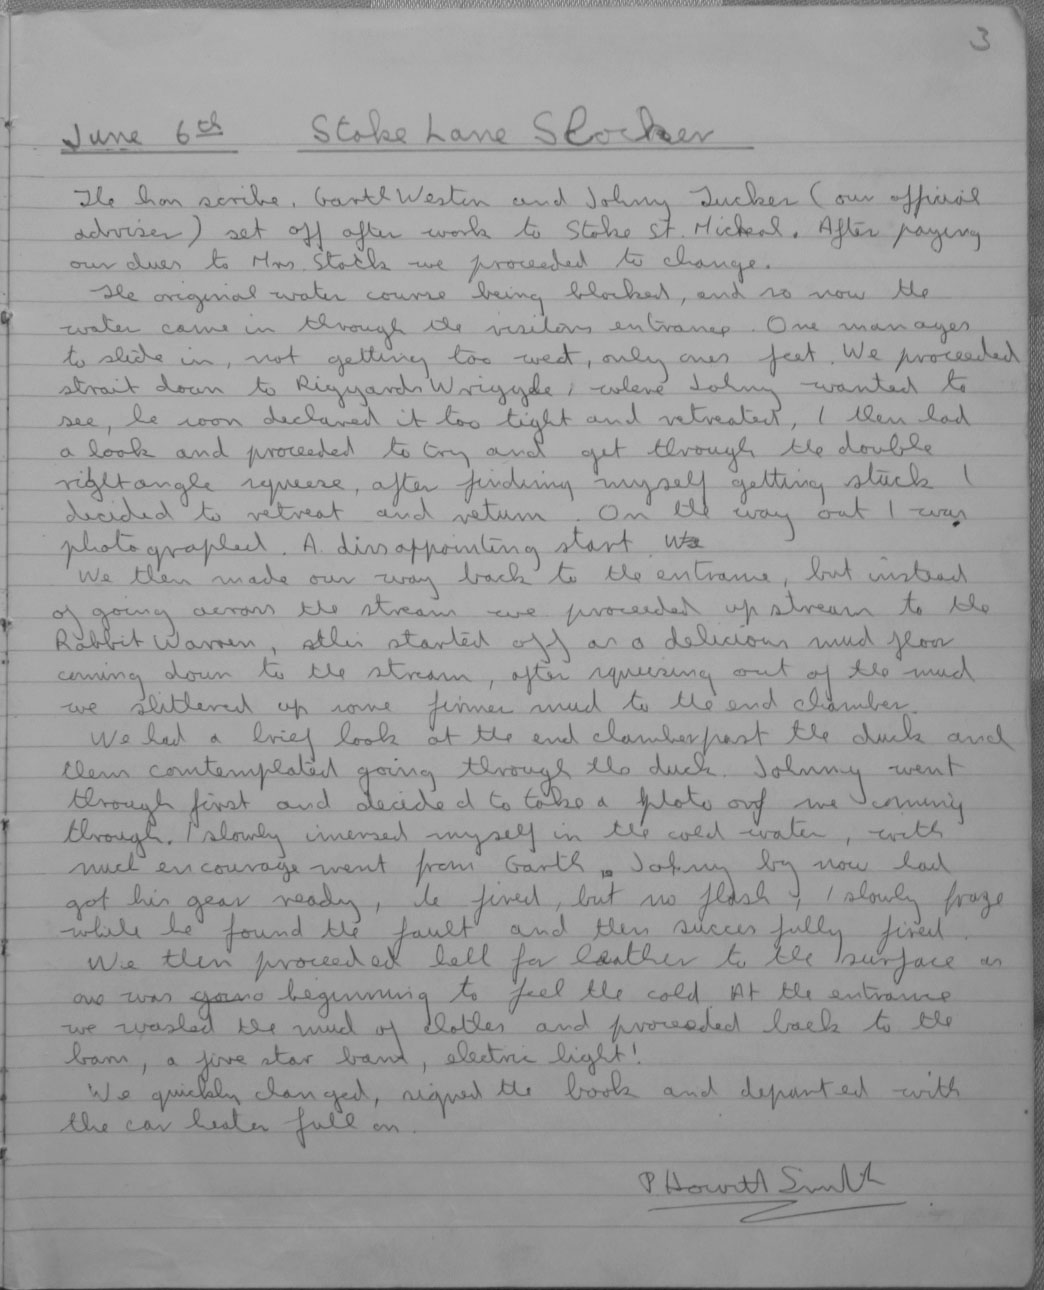 3
June 6th Stoke Lane Slocker
The hon scribe, Garth Weston and Johny Tucker (our official
adviser) set off after work to Stoke St. Micheal. After paying
our dues to Mrs. Stock we proceeded to change.
The original water course being blocked, and so now the
water came in through the visitors entrance. One manages
to slide in, not getting too wet, only ones feet. We proceeded
strait down to Wriggle, where Johny wanted to
see, he soon declared it too tight and retreated, I then had
a look and proceeded to try and get through the double
rightangle squeeze, after finding myself getting stuck I
decided to retreat and return. On the way out I was
photographed. A dissappointing start. We
We then made our way back to the entrance, but instead
of going across the stream we proceeded up stream to the
Rabbit Warren, this started off as a delicious mud floor
coming down to the stream, after squeezing out of the mud
we slithered up some firmer mud to the end chamber.
We had a brief look at the end chamber past the duck and
then comtemplated going through the duck. Johnny went
through first and decided to take a photo of me coming
through. I slowly imersed myself in the cold water, with
much encouragewent from Garth. Johny by now had
got his gear ready, he fired, but no flash, I slowly froze
while he found the fault and then succesfully fired.
We then proceeded hell for leather to the surface as
one was beginning to feel the cold. At the entrance
we washed the mud of clothes and proceeded back to the
barn, a five star barn, electric light!
We quickly changed, signed the book and departed with
the car heater full on.
P Howitt Smith